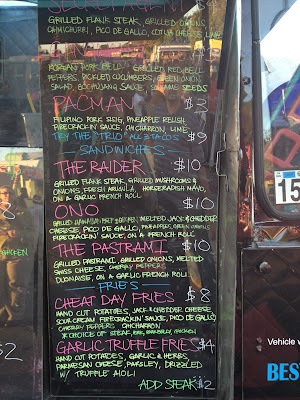 SECRET AGENT
GRILLED FLANK STEAK, GRILLED ONIONS,
CHIMICHURRI, PICO DE GALLO, COTIJA CHEESE, LIME
KOREAN PORK BELLY, GRILLED RED BELL
PEPPERS, PICKLED CUCUMBERS, GREEN ONION
SALAD, GOCHUJANG SAUCE, SESAME SEEDS
PACMAN $3
FILIPINO PORK SISIG, PINEAPPLE RELISH
FIRECRACKIN' SAUCE, CHICHARRON, LIME
TRY THE TRIO: ALL 3 TACOS $9
SANDWICHES
THE RAIDER $10
GRILLED FLANK STEAK, GRILLED MUSHROOMS &
ONIONS, FRESH ARUGULA, HORSERADISH MAYO,
ON A GARLIC FRENCH ROLL
ONO $10
GRILLED HAWAIIAN MEAT or CHICKEN, MELTED JACK & CHEDDER
CHEESE, PICO DE GALLO, PINEAPPLES, GREEN ONIONS
FIRECRACKIN' SAUCE, ON A FRENCH ROLL
THE PASTRAMI $10
GRILLED PASTRAMI, GRILLED ONIONS, MELTED
SWISS CHEESE, CHERRY PEPPERS
DIJONAISE, ON A GARLIC FRENCH ROLL
FRIES
CHEAT DAY FRIES $8
HAND CUT POTATOES, JACK & CHEDDER CHEESE
SOUR CREAM, FIRECRACKIN' SAUCE, PICO DE GALLO
CHERRY PEPPERS, CHICHARRON
* CHOICE OF STEAK, PORK, CHICKEN
GARLIC TRUFFLE FRIES $4
HAND CUT POTATOES, GARLIC & HERBS,
PARMESAN CHEESE, PARSLEY, DRIZZLED
W/ TRUFFLE AIOLI
ADD STEAK $2
15
Vehicle w
BES